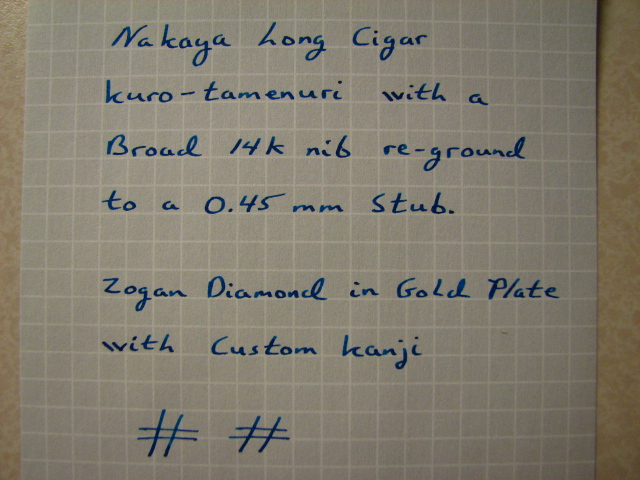 Nakaya Long Cigar
kuro-tamenuri with a
Broad 14k nib re-ground
to a 0.45 mm Stub.
Zogan Diamond in Gold Plate
with Custom kanji
# #